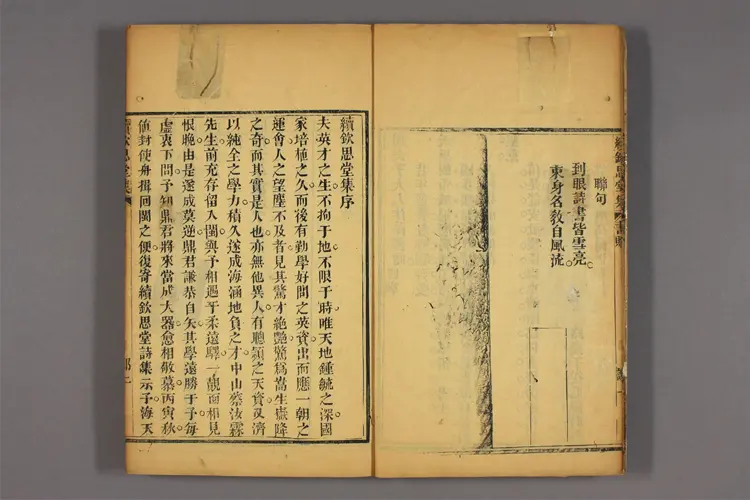 聯句
到眼詩書皆雪亮
束身名教自風流
續欽思堂集序
夫英才之生不拘于地不限于時唯天地鍾毓之深國
家培植之久而後有勤學好問之英資出而應一朝之
運會人之望塵不及者見其驚才絕艷驚爲嵩生嶽降
之奇而其實是人也亦無他異人有聰穎之天資又濟
以純全之學力積久遂成海涵地負之才中山蔡汝霖
先生前充存留入閩與予相遇于柔遠驛一覿面相見
恨晚由是遂成莫逆鼎君謙恭自矢其學遠勝于予每
虛衷下問予知鼎君將來當成大器愈相敬慕丙寅秋
值封使舟揖回閩之便復寄續欽思堂詩集示予海天
續欽思堂集